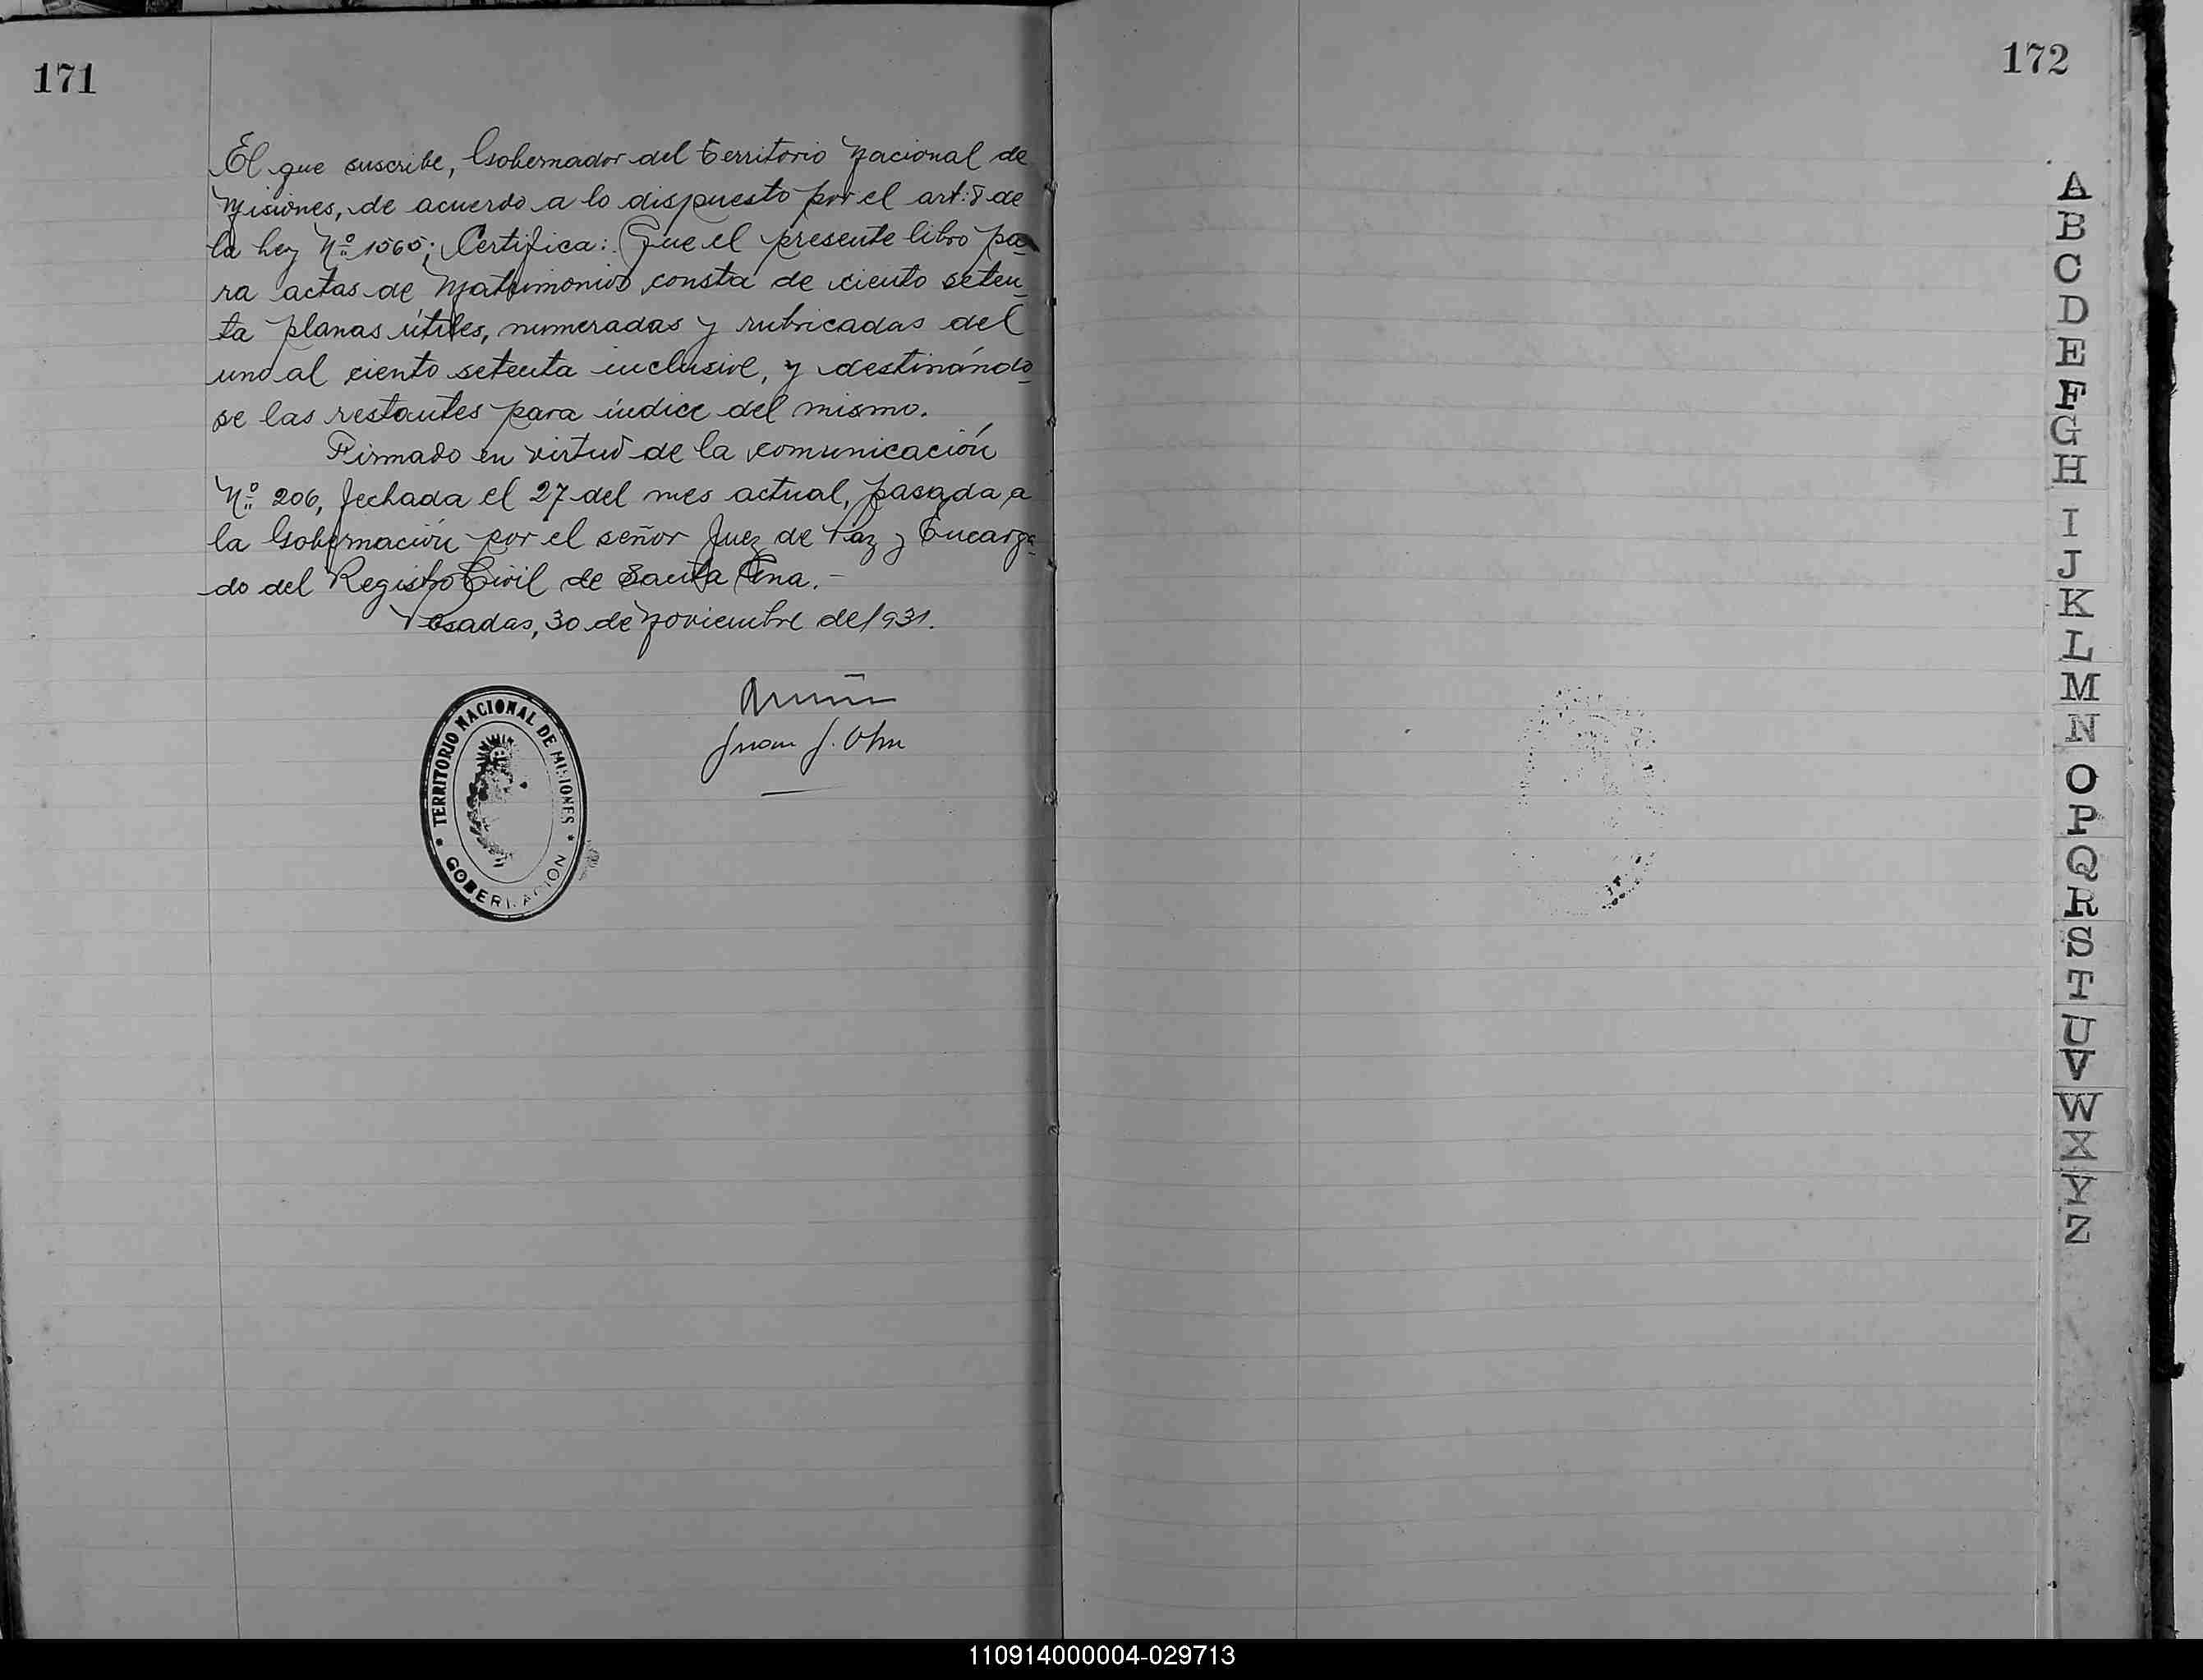 171
El que suscribe, Gobernador del Territorio Nacional de
Misiones, de acuerdo a lo dispuesto por el art. 8 de
la ley Nº 1565; Certifica: Que el presente libro pa-
ra actas de Matrimonios consta de ciento seten-
ta planas útiles, numeradas y rubricadas del
uno al ciento setenta inclusive, y destinándo-
se las restantes para índice del mismo.
Firmado en virtud de la comunicación
Nº 206, fechada el 27 del mes actual, pasada a
la Gobernación por el señor Juez de Paz y Encarga-
do del Registro Civil de Santa Ana.-
Posadas, 30 de Noviembre de 1931.
Juan J.
TERRITORIO NACIONAL DE MISIONES
GOBERNACION
172
A
B
C
D
E
F
G
H
I
J
K
L
M
N
O
P
Q
R
S
T
U
V
W
X
Y
Z
110914000004-029713